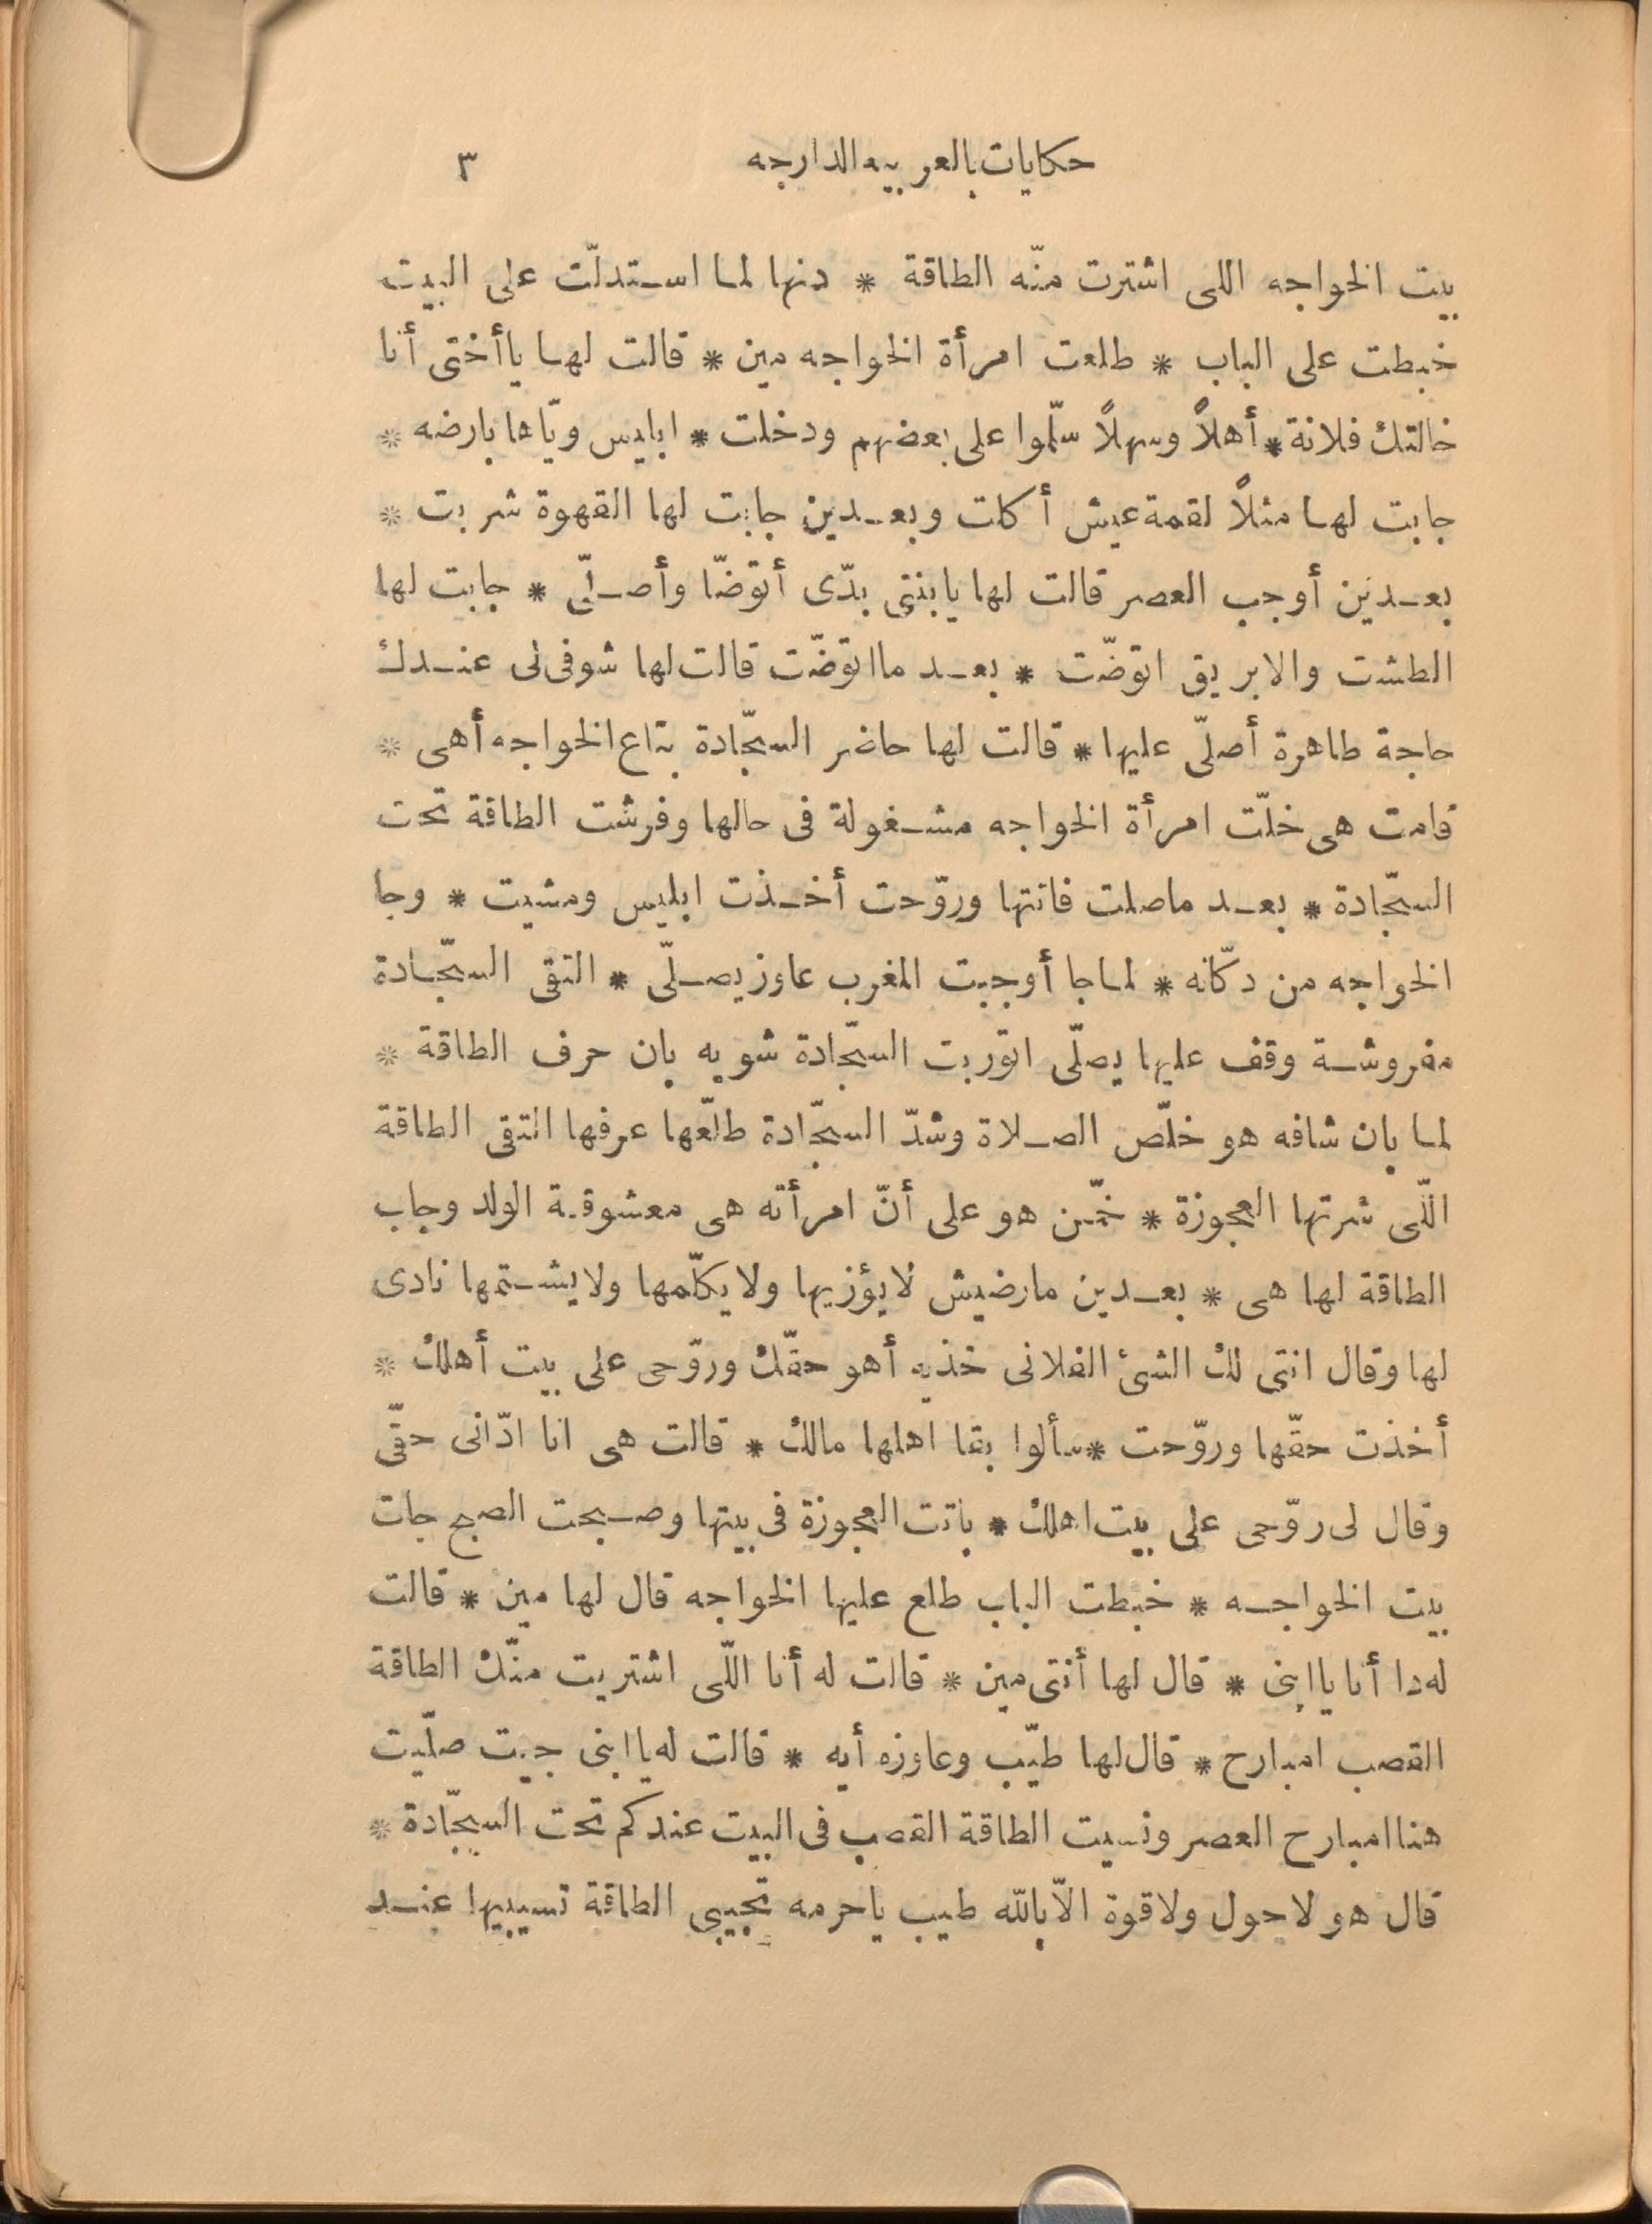 حكايات بالعربيه الدارجه ٣
بيت الخواجه اللى اشترت منّه الطاقة * دنها لما استدلّت على البيت
خبطت على الباب * طلعت امرأة الخواجه مين * قالت لها ياأختى أنا
خالتك فلانة * أهلاً وسهلاً سلّموا على بعضهم ودخلت * ابليس ويّاها بارضه *
جابت لها مثلاً لقمة عيش أكلت وبعدين جابت لها القهوة شربت *
بعدين أوجب العصر قالت لها يابنتى بدّى أتوضّا وأصلّى * جابت لها
الطشت والابريق اتوضّت * بعد مااتوضّت قالت لها شوفى لى عندك
حاجة طاهرة أصلّى عليها * قالت لها حاضر السجّادة بتاع الخواجه أهى *
قامت هى خلّت امرأة الخواجه مشغولة فى حالها وفرشت الطاقة تحت
السجّادة * بعد ماصلت فاتتها وروّحت أخذت ابليس ومشيت * وجا
الخواجه من دكّانه * لما جا أوجبت المغرب عاوز يصلّى * التقى السجّادة
مفروشة وقف عليها يصلّى اتوربت السجّادة شويه بان حرف الطاقة *
لما بان شافه هو خلّص الصلاة وشدّ السجّادة طلّعها عرفها التقى الطاقة
اللّى شرتها العجوزة * خمّن هو على أنّ امرأته هى معشوقة الولد وجاب
الطاقة لها هى * بعدين مارضيش لايؤزيها ولا يكلّمها ولايشتمها نادى
لها وقال انتى لك الشئ الفلانى خذيه أهو حقّك وروّحى على بيت أهلك *
أخذت حقّها وروّحت * سألوا بقا اهلها مالك * قالت هى انا ادّانى حقّى
وقال لى روّحى على بيت اهلك * باتت العجوزة فى بيتها وصبحت الصبح جات
بيت الخواجه * خبطت الباب طلع عليها الخواجه قال لها مين * قالت
له دا أنا ياابنى * قال لها أنتى مين * قالت له أنا اللّى اشتريت منّك الطاقة
القصب امبارح * قال لها طيّب وعاوزه أيه * قالت له ياابنى جيت صلّيت
هنا امبارح العصر ونسيت الطاقة القصب فى البيت عندكم تحت السجّادة *
قال هو لا حول ولا قوة الاّ بالله طيب ياحرمه تجيبى الطاقة تسيبيها عند